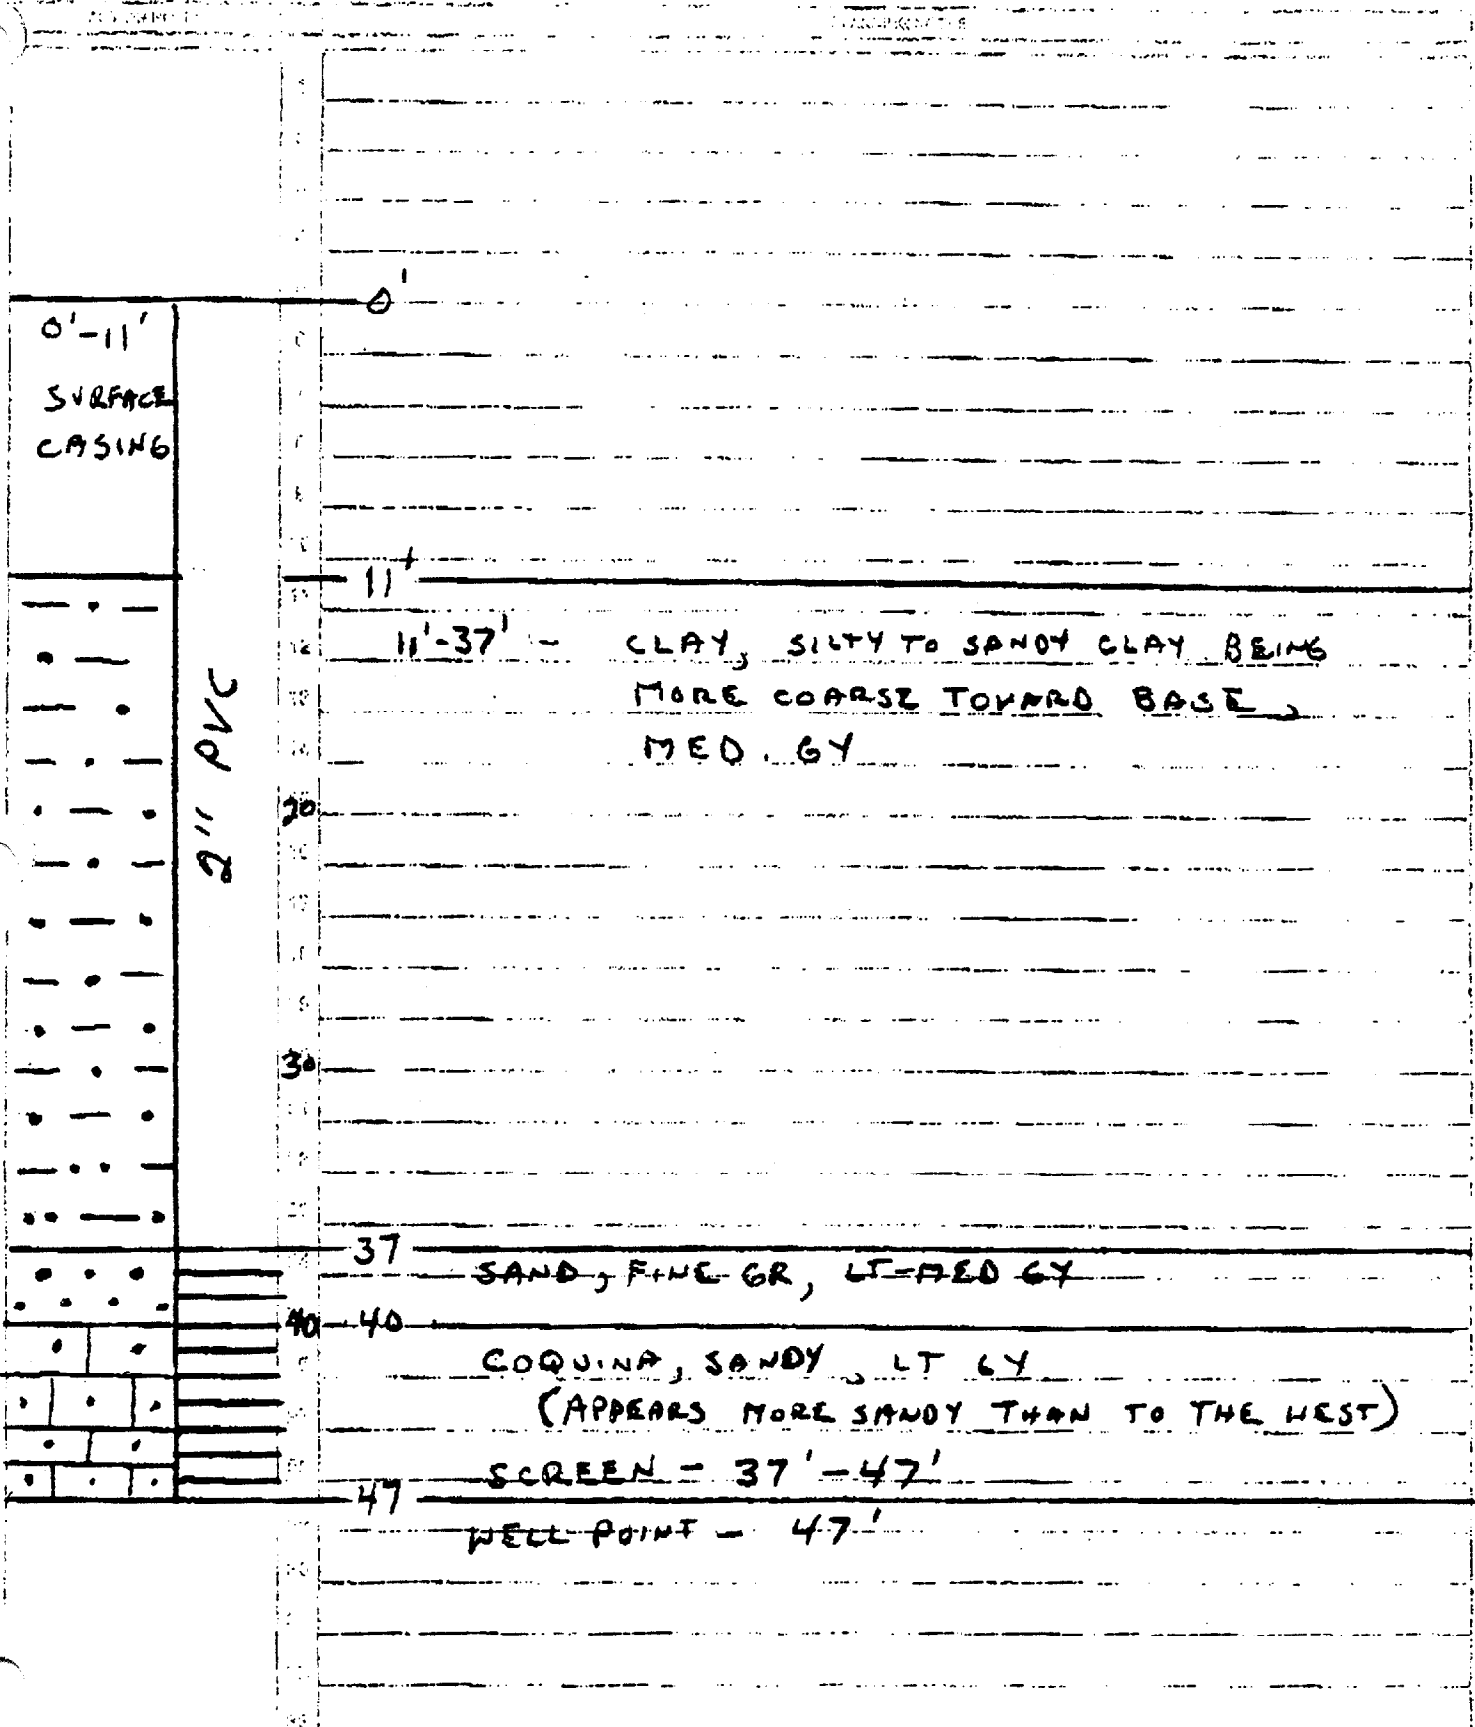 0'
0'-11'
SURFACE
CASING
11'
11'-37' - CLAY, SILTY TO SANDY CLAY BEING
MORE COARSE TOWARD BASE,
MED. GY
2" PVC
20
30
37
SAND, FINE GR, LT-MED GY
40 40
COQUINA, SANDY, LT GY
(APPEARS MORE SANDY THAN TO THE WEST)
SCREEN - 37'-47'
47
WELL POINT - 47'